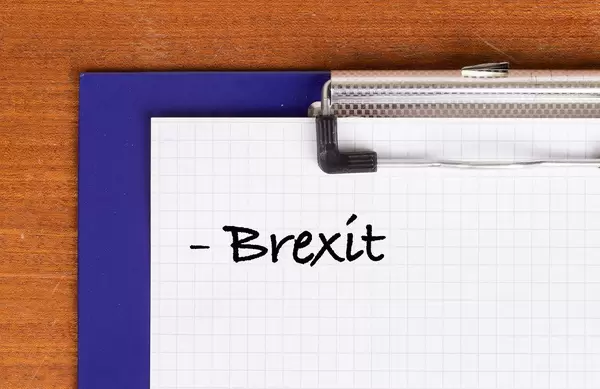 - Brexit